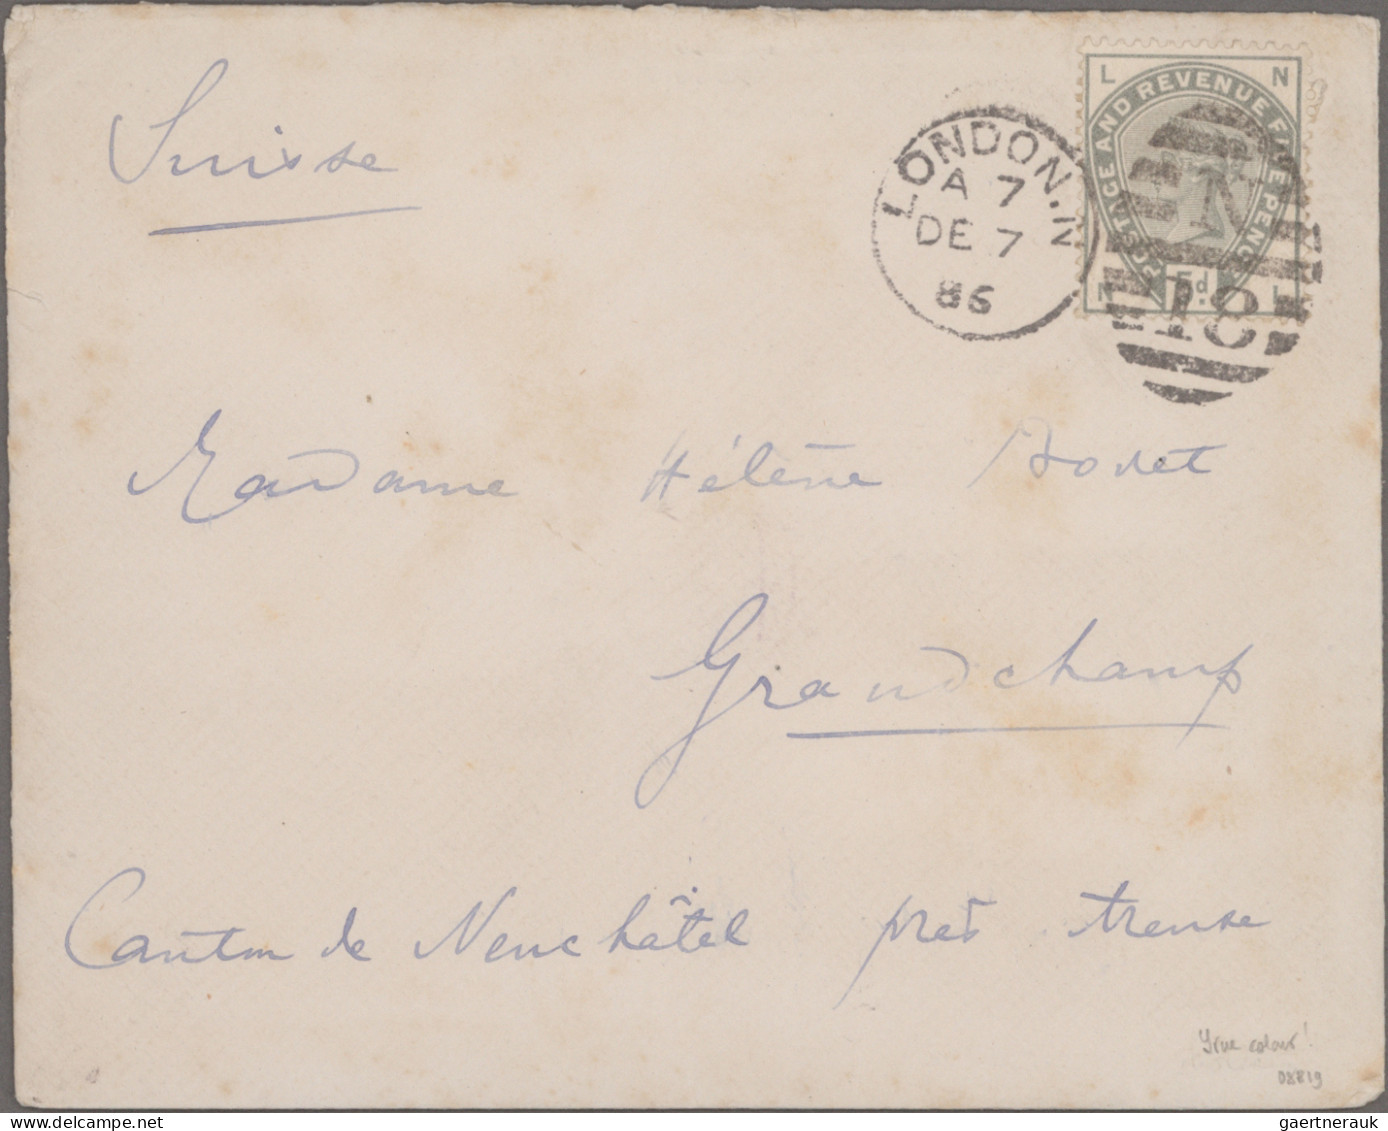 Suisse
L N
POSTAGE AND REVENUE FIVE PENCE
5d
N L
LONDON.N
A 7
DE 7
86
N
18
Madame Hélène Bovet
Grandchamp
Canton de Neuchâtel près Areuse
True colour!
08819
gaertnerauk